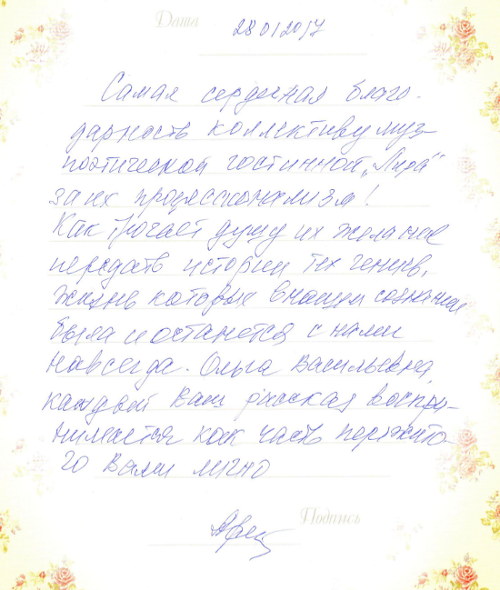 Дата
28 01 2017
Самая сердечная благо-
дарность коллективу муз
поэтической гостинной „Лира“
за их профессионализм!
Как трогает душу их желание
передать истории тех гениев,
жизнь которых в нашем сознании
была и останется с нами
навсегда. Ольга Васильевна,
каждый Ваш рассказ воспри-
нимается как часть пережито-
го Вами лично
Подпись